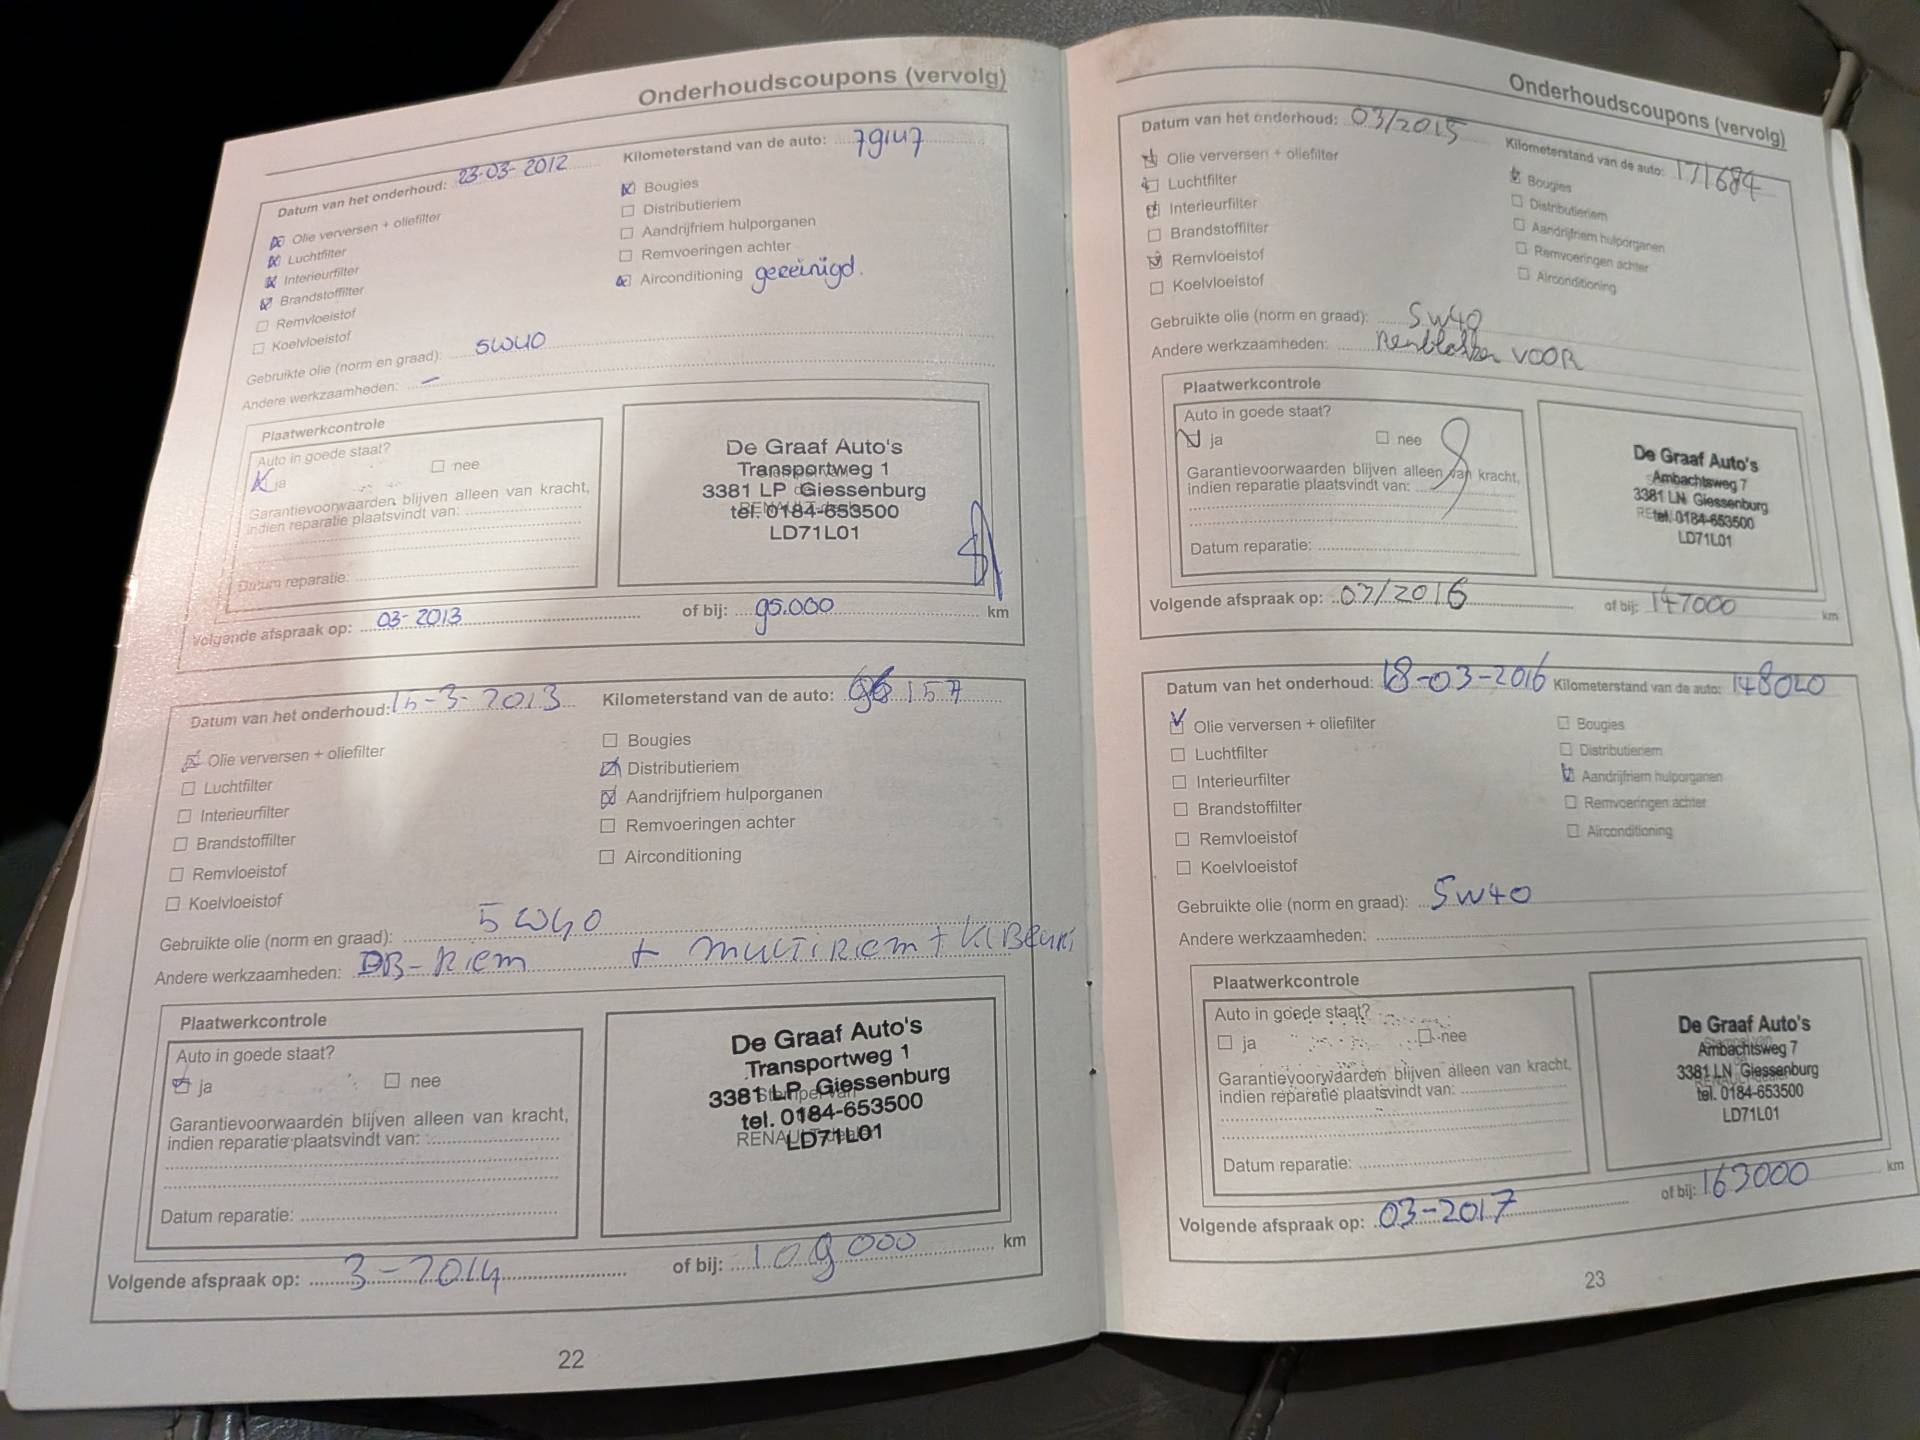 Onderhoudscoupons (vervolg)
Datum van het onderhoud: 23-03-2012 Kilometerstand van de auto: 79147
Olie verversen + oliefilter
Luchtfilter
Interieurfilter
Brandstoffilter
Remvloeistof
Koelvloeistof
Bougies
Distributieriem
Aandrijfriem hulporganen
Remvoeringen achter
Airconditioning gereinigd.
Gebruikte olie (norm en graad): 5W40
Andere werkzaamheden: -
Plaatwerkcontrole
Auto in goede staat?
ja nee
Garantievoorwaarden blijven alleen van kracht,
indien reparatie plaatsvindt van:
Datum reparatie:
De Graaf Auto's
Transportweg 1
3381 LP Giessenburg
tel. 0184-653500
LD71L01
Volgende afspraak op: 03-2013 of bij: 95.000 km
Datum van het onderhoud: 15-3-2013 Kilometerstand van de auto: 157
Olie verversen + oliefilter
Luchtfilter
Interieurfilter
Brandstoffilter
Remvloeistof
Koelvloeistof
Bougies
Distributieriem
Aandrijfriem hulporganen
Remvoeringen achter
Airconditioning
Gebruikte olie (norm en graad): 5W40
Andere werkzaamheden: DB-Riem + MULTIRIEM +
Plaatwerkcontrole
Auto in goede staat?
ja nee
Garantievoorwaarden blijven alleen van kracht,
indien reparatie plaatsvindt van:
Datum reparatie:
De Graaf Auto's
Transportweg 1
3381 LP Giessenburg
tel. 0184-653500
RENAULT
LD71L01
Volgende afspraak op: 3-2014 of bij: 109000 km
22
Onderhoudscoupons (vervolg)
Datum van het onderhoud: 03/2015 Kilometerstand van de auto: 131684
Olie verversen + oliefilter
Luchtfilter
Interieurfilter
Brandstoffilter
Remvloeistof
Koelvloeistof
Bougies
Distributieriem
Aandrijfriem hulporganen
Remvoeringen achter
Airconditioning
Gebruikte olie (norm en graad): 5W40
Andere werkzaamheden: Remblokken VOOR
Plaatwerkcontrole
Auto in goede staat?
ja nee
Garantievoorwaarden blijven alleen van kracht,
indien reparatie plaatsvindt van:
Datum reparatie:
De Graaf Auto's
Ambachtsweg 7
3381 LN Giessenburg
tel. 0184-653500
LD71L01
Volgende afspraak op: 03/2016 of bij: 147000 km
Datum van het onderhoud: 18-03-2016 Kilometerstand van de auto: 148020
Olie verversen + oliefilter
Luchtfilter
Interieurfilter
Brandstoffilter
Remvloeistof
Koelvloeistof
Bougies
Distributieriem
Aandrijfriem hulporganen
Remvoeringen achter
Airconditioning
Gebruikte olie (norm en graad): 5W40
Andere werkzaamheden:
Plaatwerkcontrole
Auto in goede staat?
ja nee
Garantievoorwaarden blijven alleen van kracht,
indien reparatie plaatsvindt van:
Datum reparatie:
De Graaf Auto's
Ambachtsweg 7
3381 LN Giessenburg
tel. 0184-653500
LD71L01
Volgende afspraak op: 03-2017 of bij: 163000 km
23